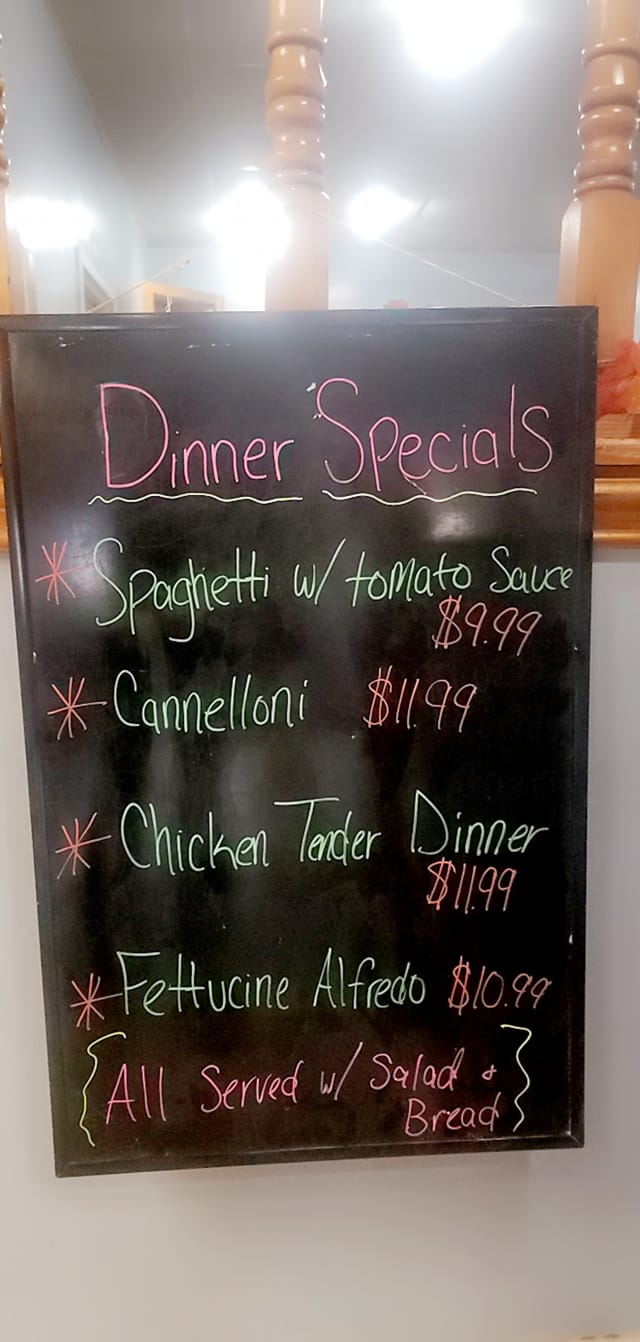 Dinner Specials
* Spaghetti w/ tomato Sauce
$9.99
* Cannelloni $11.99
* Chicken Tender Dinner
$11.99
* Fettucine Alfredo $10.99
{All Served w/ Salad &
Bread}